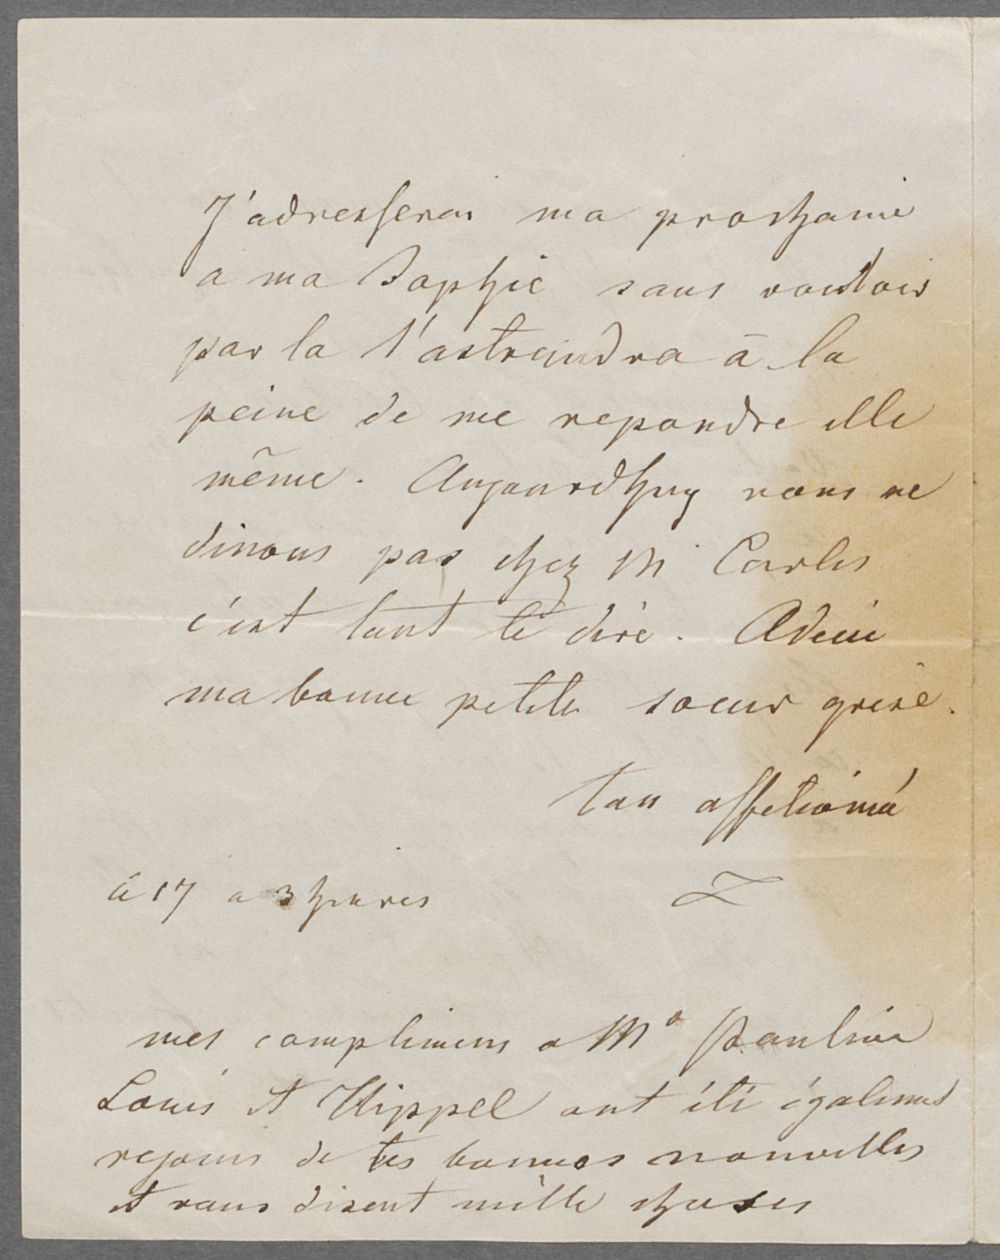 J'adresserai ma prochaine
a ma Sophie sans vouloir
par la l'astreindre à la
peine de me repondre elle
même. Aujourdhuy nous ne
dinons pas chez M Carles
c'est tant te dire. Adieu
ma bonne petite soeur grise.
ton affetioné
à 17 a 3 heures
mes complimens a Me Pauline
Louis et Kippel ont été égalemnt
rejouis de tes bonnes nouvelles
et vous disent mille choses